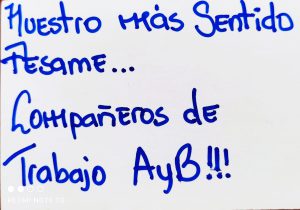 Nuestro más Sentido
Pesame...
Compañeros de
Trabajo AyB!!!